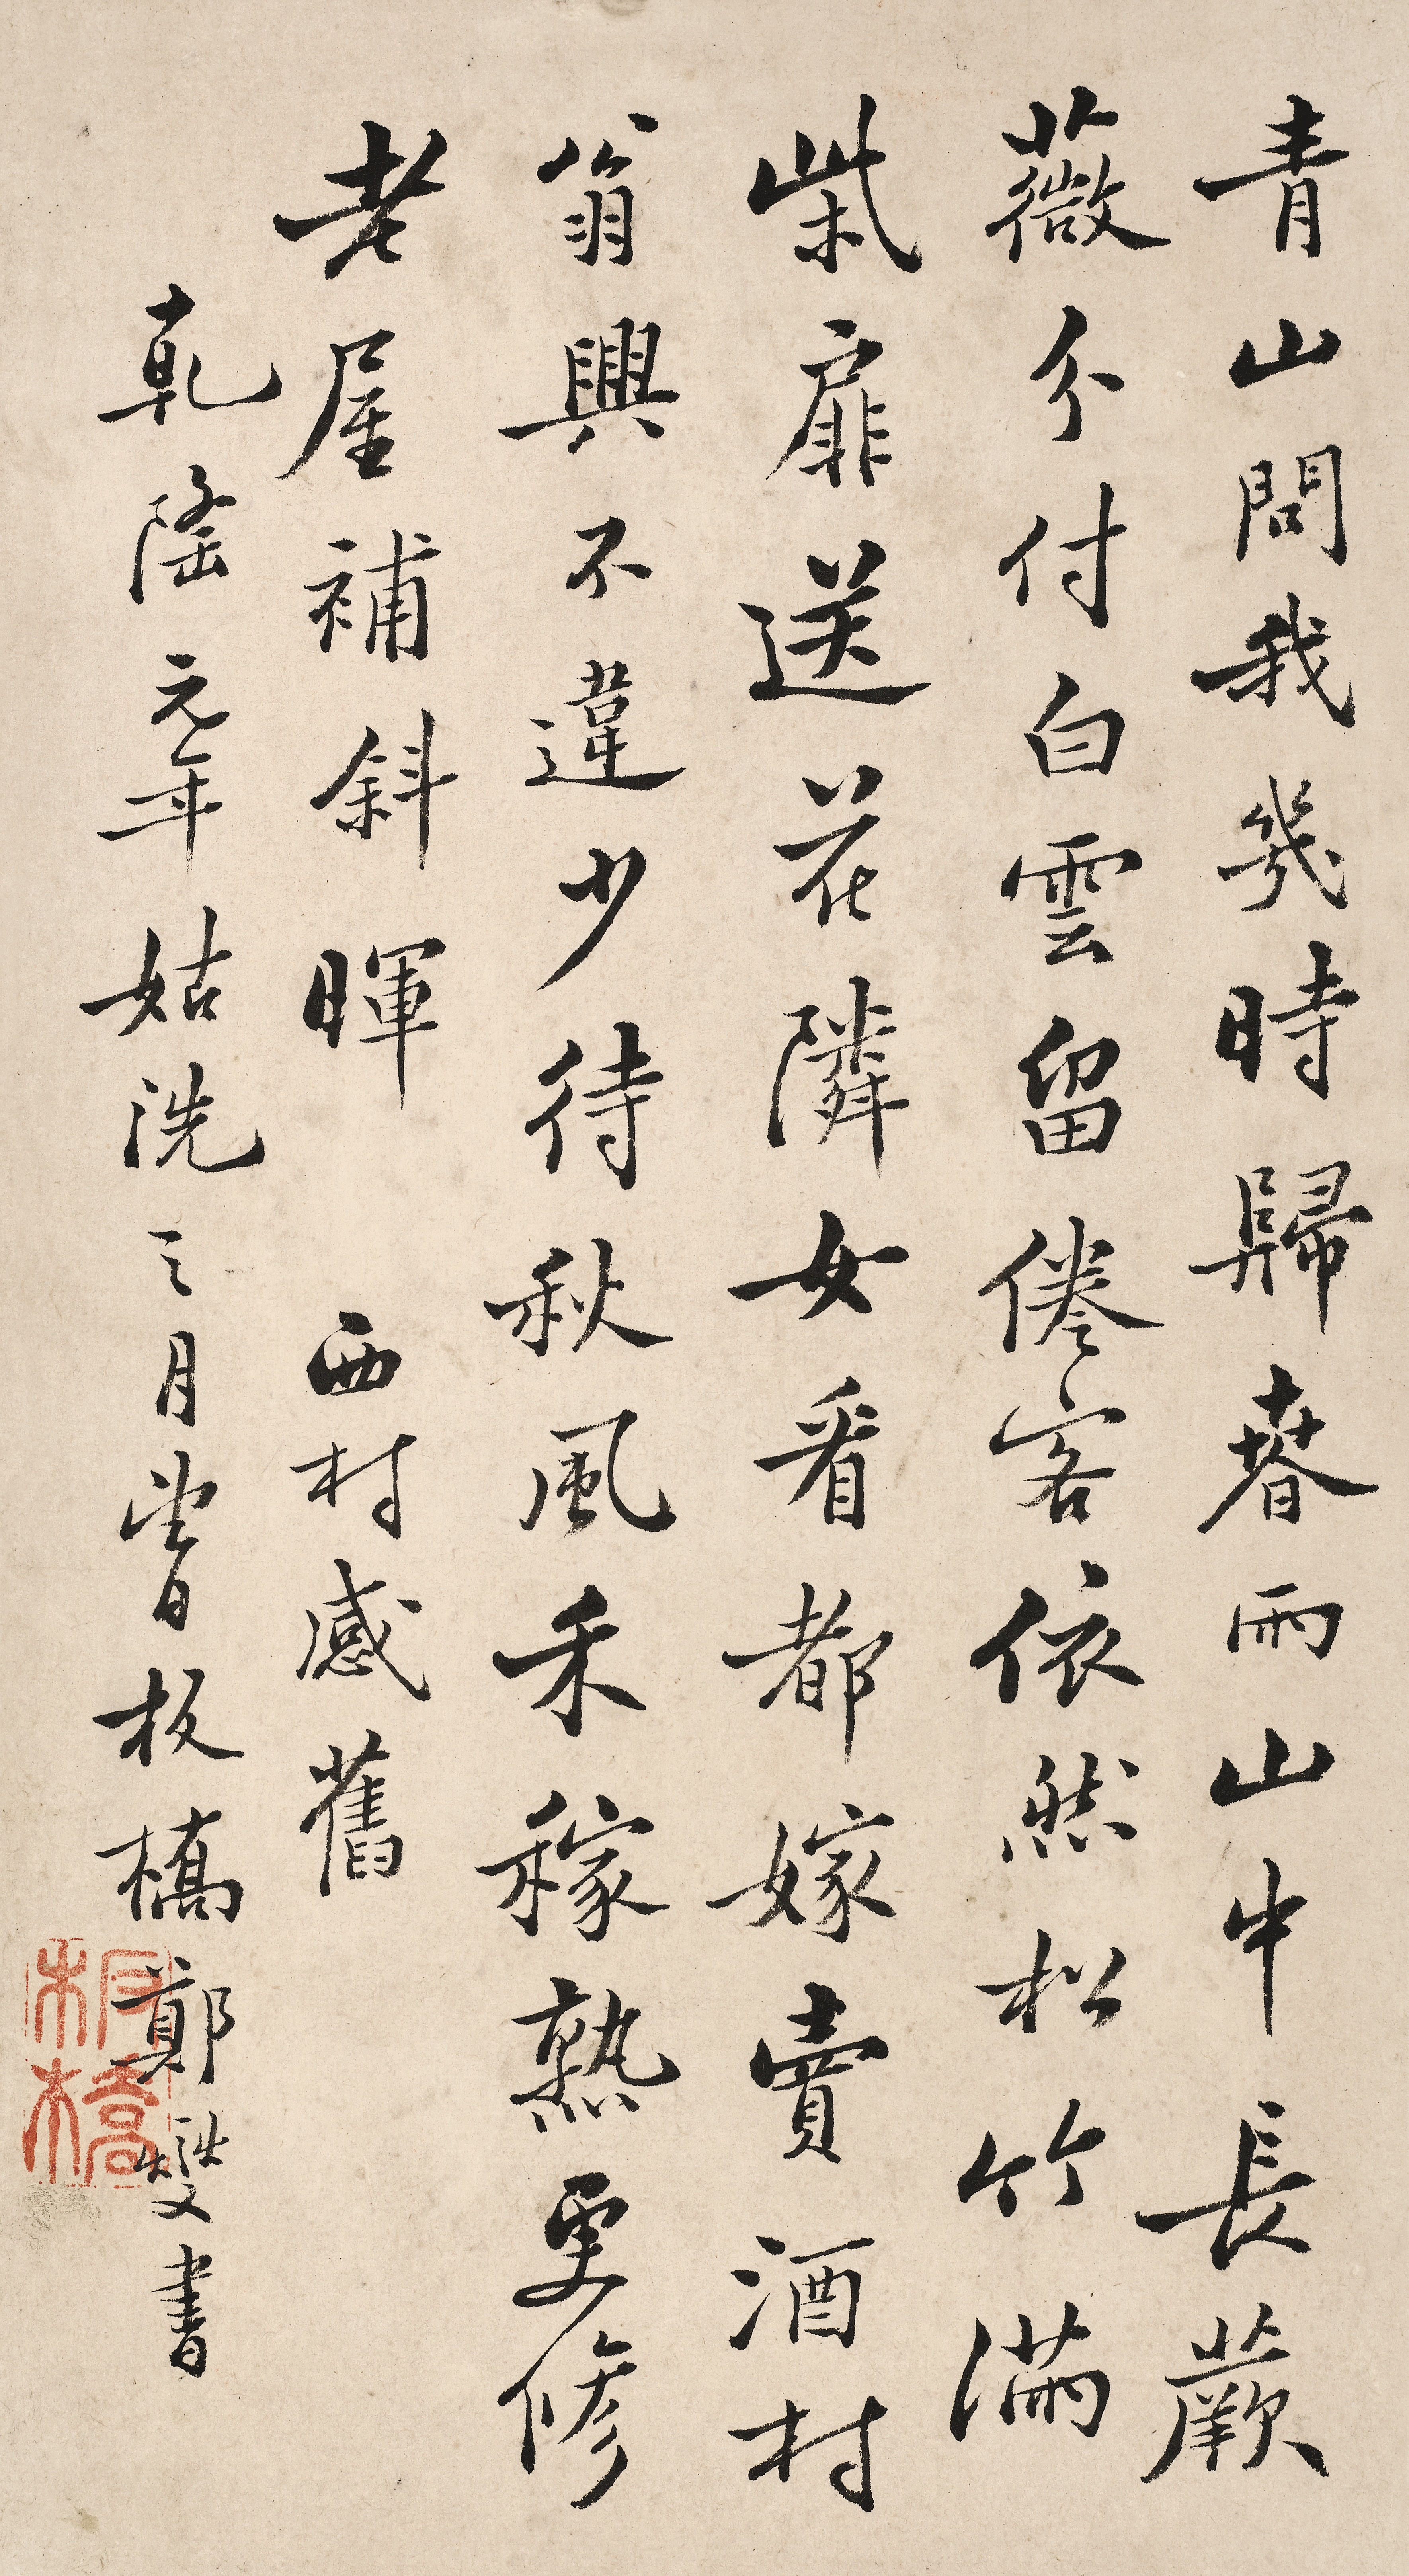 青山問我幾時歸春雨山中長蕨
薇分付白雲留倦客依然松竹滿
柴扉送花隣女看都嫁賣酒村
翁興不違少待秋風禾稼熟更修
老屋補斜暉 西村感舊
乾隆元年姑洗之月當日板橋鄭燮書
板橋